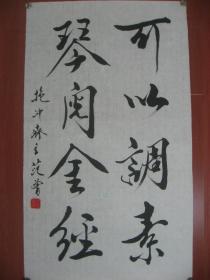 可以調素
琴閱金經
抱沖齋主范曾